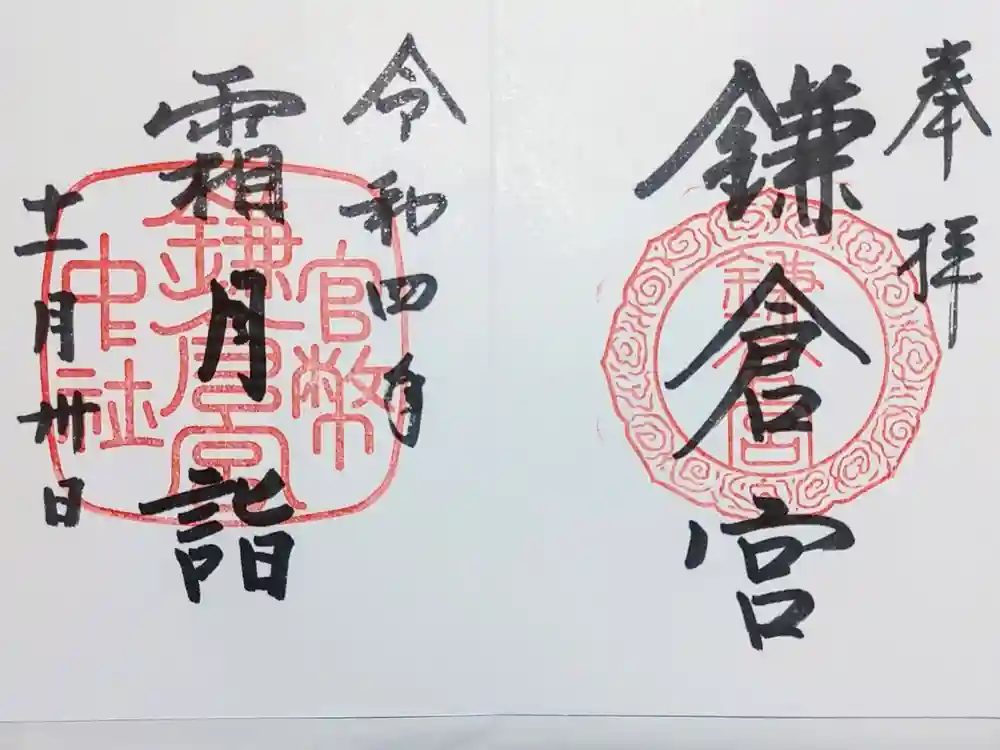 奉拝
鎌倉宮
鎌倉宮
令和四年
官幣
霜月詣
鎌倉宮
中社
十一月卅日